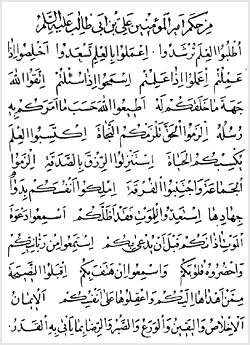 من حكم أمير المؤمنين علي بن أبي طالب عليه السلام
اطلبوا العلم ترشدوا . اعملوا بالعلم تسعدوا أخلصوا إذا
عملتم اعملوا إذا علمتم اسمحوا إذا سئلتم اتقوا الله
جهة ما خلقكم له أطيعوا الله حسب ما أمركم به
رسله الزموا الحق تلزمكم النجاة اكتسبوا العلم
يكسبكم الحياة استنزلوا الرزق بالصدقة الزموا
الجماعة واجتنبوا الفرقة املكوا أنفسكم بدوام
جهادها استعدوا للموت فقد أظلكم اسمعوا دعوة
الموت آذانكم قبل أن يدعى بكم استمعوا من ربانيكم
وأحضروه قلوبكم واسمعوا إن هتف بكم اقبلوا النصيحة
ممن أهداها إليكم واعقلوها على أنفسكم الإيمان
الإخلاص واليقين والورع والصبر والرضا بما يأتي به القدر.